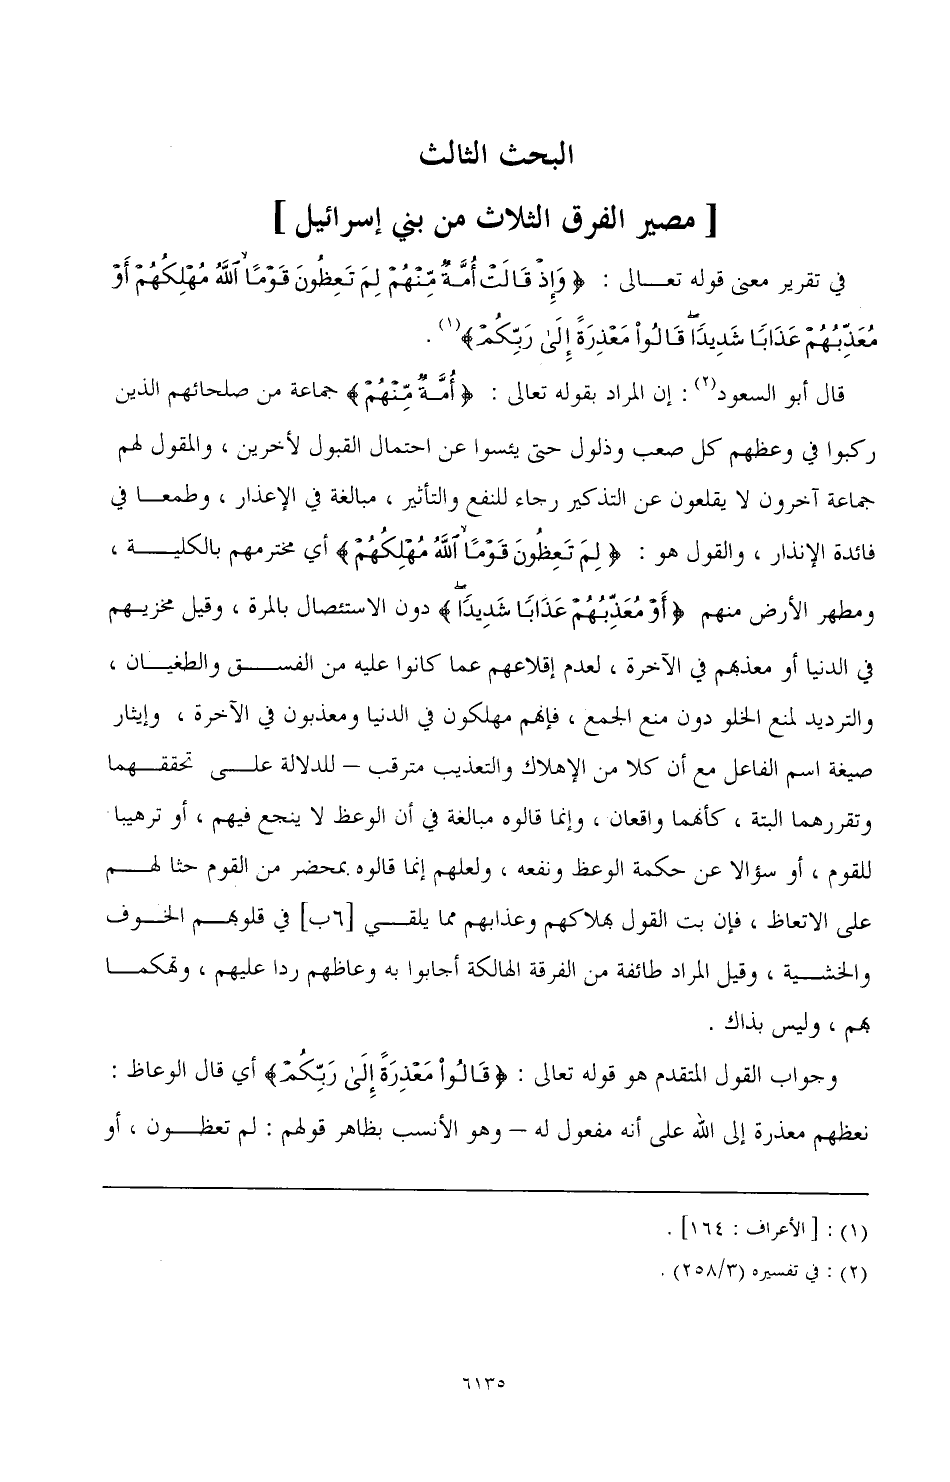 البحث الثالث
[ مصير الفرق الثلاث من بني إسرائيل ]
في تقرير معنى قوله تعـــالى : ﴿ وَإِذْ قَالَتْ أُمَّةٌ مِّنْهُمْ لِمَ تَعِظُونَ قَوْمًا ۙ ٱللَّهُ مُهْلِكُهُمْ أَوْ
مُعَذِّبُهُمْ عَذَابًا شَدِيدًا ۖ قَالُوا۟ مَعْذِرَةً إِلَىٰ رَبِّكُمْ ﴾(١) .
قال أبو السعود(٢) : إن المراد بقوله تعالى : ﴿ أُمَّةٌ مِّنْهُمْ ﴾ جماعة من صلحائهم الذين
ركبوا في وعظهم كل صعب وذلول حتى يئسوا عن احتمال القبول لأخرين ، والمقول لهم
جماعة آخرون لا يقلعون عن التذكير رجاء للنفع والتأثير ، مبالغة في الإعذار ، وطمعـــا في
فائدة الإنذار ، والقول هو : ﴿ لِمَ تَعِظُونَ قَوْمًا ۙ ٱللَّهُ مُهْلِكُهُمْ ﴾ أي مخترمهم بالكليـــــة ،
ومطهر الأرض منهم ﴿ أَوْ مُعَذِّبُهُمْ عَذَابًا شَدِيدًا ۖ ﴾ دون الاستئصال بالمرة ، وقيل مخزيـــهم
في الدنيا أو معذبهم في الآخرة ، لعدم إقلاعهم عما كانوا عليه من الفســـق والطغيـــان ،
والترديد لمنع الخلو دون منع الجمع ، فإنهم مهلكون في الدنيا ومعذبون في الآخرة ، وإيثار
صيغة اسم الفاعل مع أن كلا من الإهلاك والتعذيب مترقب – للدلالة علـــى تحققـــهما
وتقررهما البتة ، كأنهما واقعان ، وإنما قالوه مبالغة في أن الوعظ لا ينجع فيهم ، أو ترهيبا
للقوم ، أو سؤالا عن حكمة الوعظ ونفعه ، ولعلهم إنما قالوه بمحضر من القوم حثا لهـــم
على الاتعاظ ، فإن بت القول بهلاكهم وعذابهم مما يلقـــي [٦ب] في قلوبهـــم الخـــوف
والخشـــية ، وقيل المراد طائفة من الفرقة الهالكة أجابوا به وعاظهم ردا عليهم ، وتهكمـــا
بهم ، وليس بذاك .
وجواب القول المتقدم هو قوله تعالى : ﴿ قَالُوا۟ مَعْذِرَةً إِلَىٰ رَبِّكُمْ ﴾ أي قال الوعاظ :
نعظهم معذرة إلى الله على أنه مفعول له – وهو الأنسب بظاهر قولهم : لم تعظـــون ، أو
(١) : [ الأعراف : ١٦٤] .
(٢) : في تفسيره (٢٥٨/٣) .
٦١٣٥